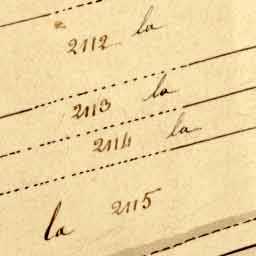 2112 la
2113 la
2114 la
la 2115